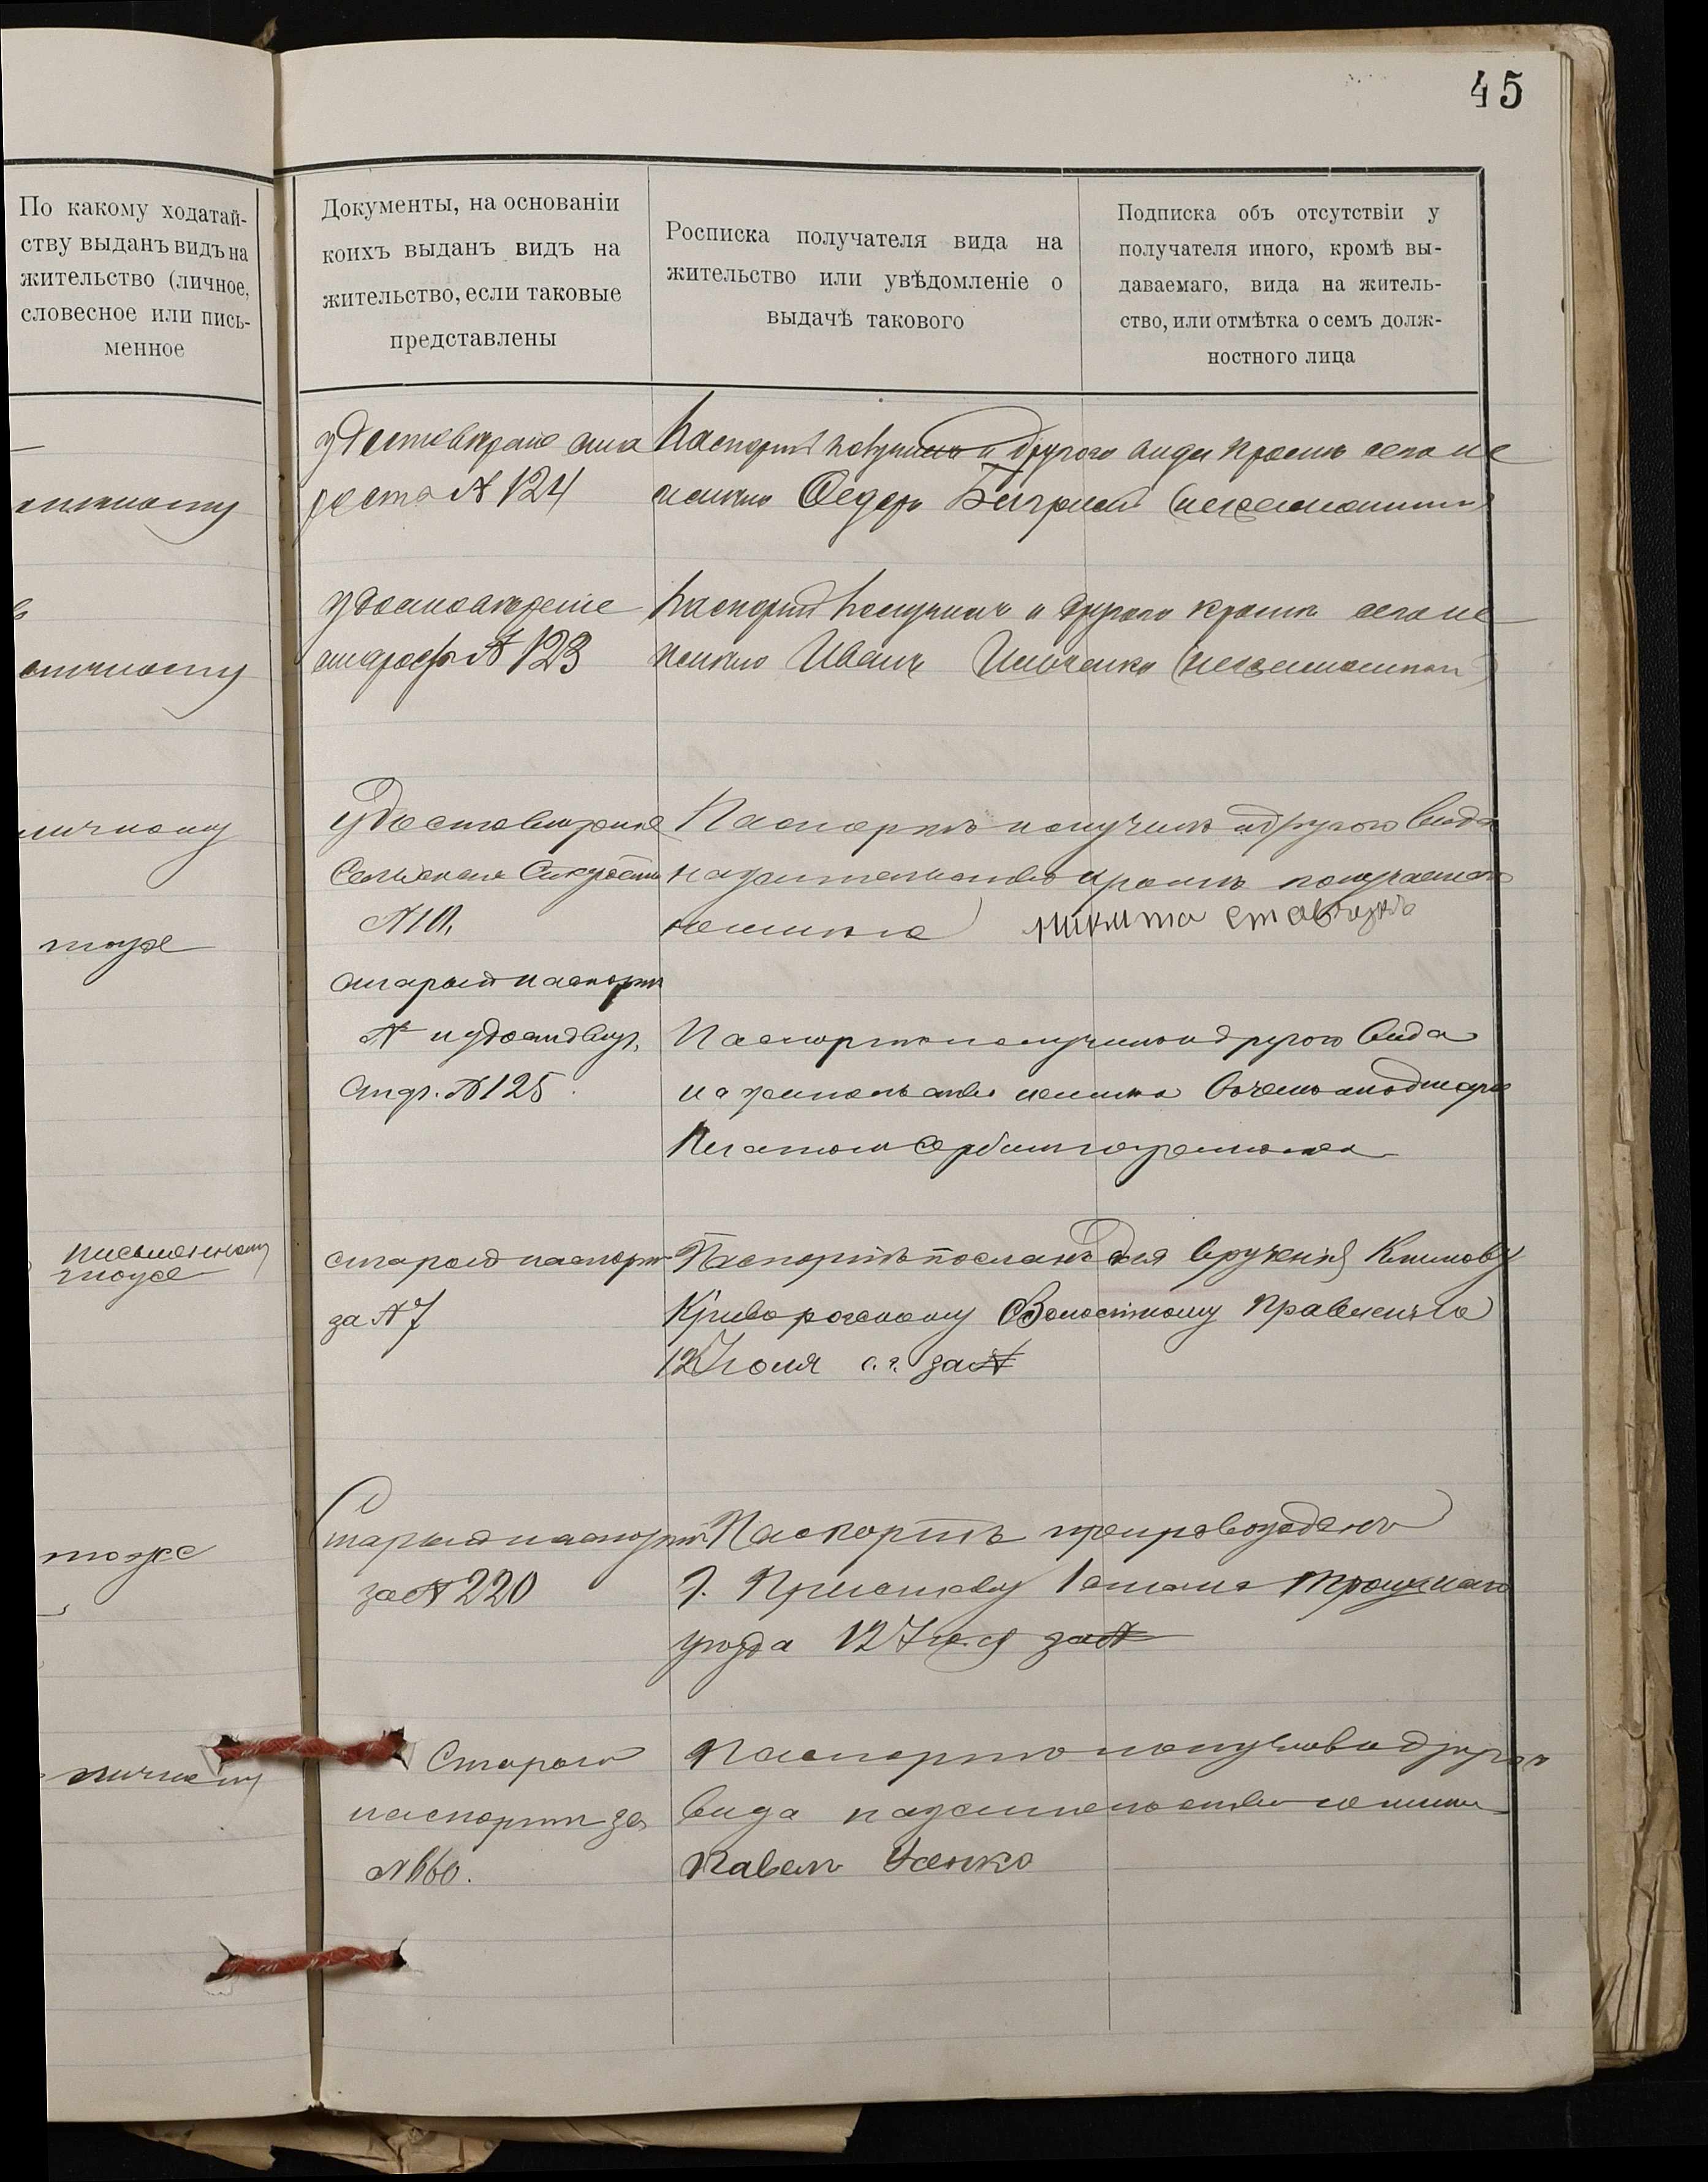 45
По какому ходатай-
ству выданъ видъ на
жительство (личное,
словесное или пись-
менное
Документы, на основаніи
коихъ выданъ видъ на
жительство, если таковые
представлены
Росписка получателя вида на
жительство или увѣдомленіе о
выдачѣ такового
Подписка объ отсутствіи у
получателя иного, кромѣ вы-
даваемаго, вида на житель-
ство, или отмѣтка о семъ долж-
ностного лица
личному
удостовѣреніе ста
росты № 124
Паспортъ получилъ и другого вида кромѣ сего не
имѣю Федоръ
личному
удостовѣреніе
старосты № 123
Паспортъ получилъ и другого кромѣ сего не
имѣю Иванъ
личному
удостовѣреніе
Сельскаго Старосты
Паспортъ получилъ и другого вида
на жительство кромѣ получаемаго
не имѣю Никита
тоже
старый паспортъ
№ и удостовѣр.
Стар. № 125.
Паспортъ получилъ и другого вида
на жительство не имѣю
письменному
тоже
старый паспортъ
за № 7
Паспортъ посланъ для врученія Климову
Криворожскому Волостному Правленію
12 Іюля с.г. за №
тоже
Старый паспортъ
за № 220
Паспортъ препровожденъ
Г. Приставу 1 стана
уѣзда 12 Іюля за №
личному
Старый
паспортъ за
№ 660.
Паспортъ получилъ и другого
вида на жительство не имѣю
Павелъ Усенко